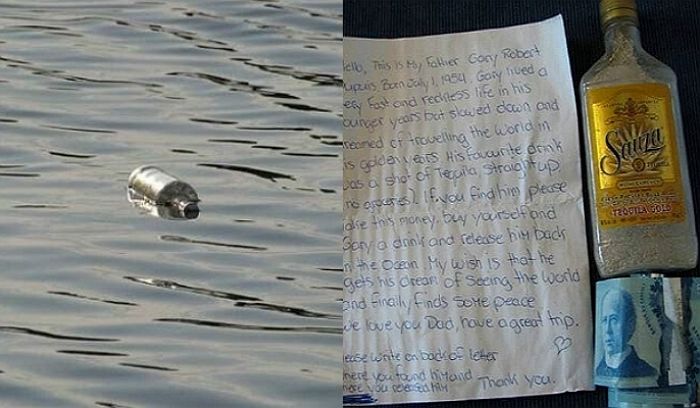 ello, This is My Father Gary Robert
upuis. Born July 1, 1954. Gary lived a
ery Fast and reckless life in his
ounger years but slowed down and
reamed of travelling the world in
s golden years. His favourite drink
as a shot of Tequila, straight up
no groceries). If you find him please
ake this money, buy yourself and
Gary a drink and release him back
n the Ocean. My wish is that he
gets his dream of Seeing the World
and finally finds some peace
We love you Dad, have a great trip.
ease write on back of letter
here you found him and Thank you.
here you released him
Sauza
TEQUILA GOLD